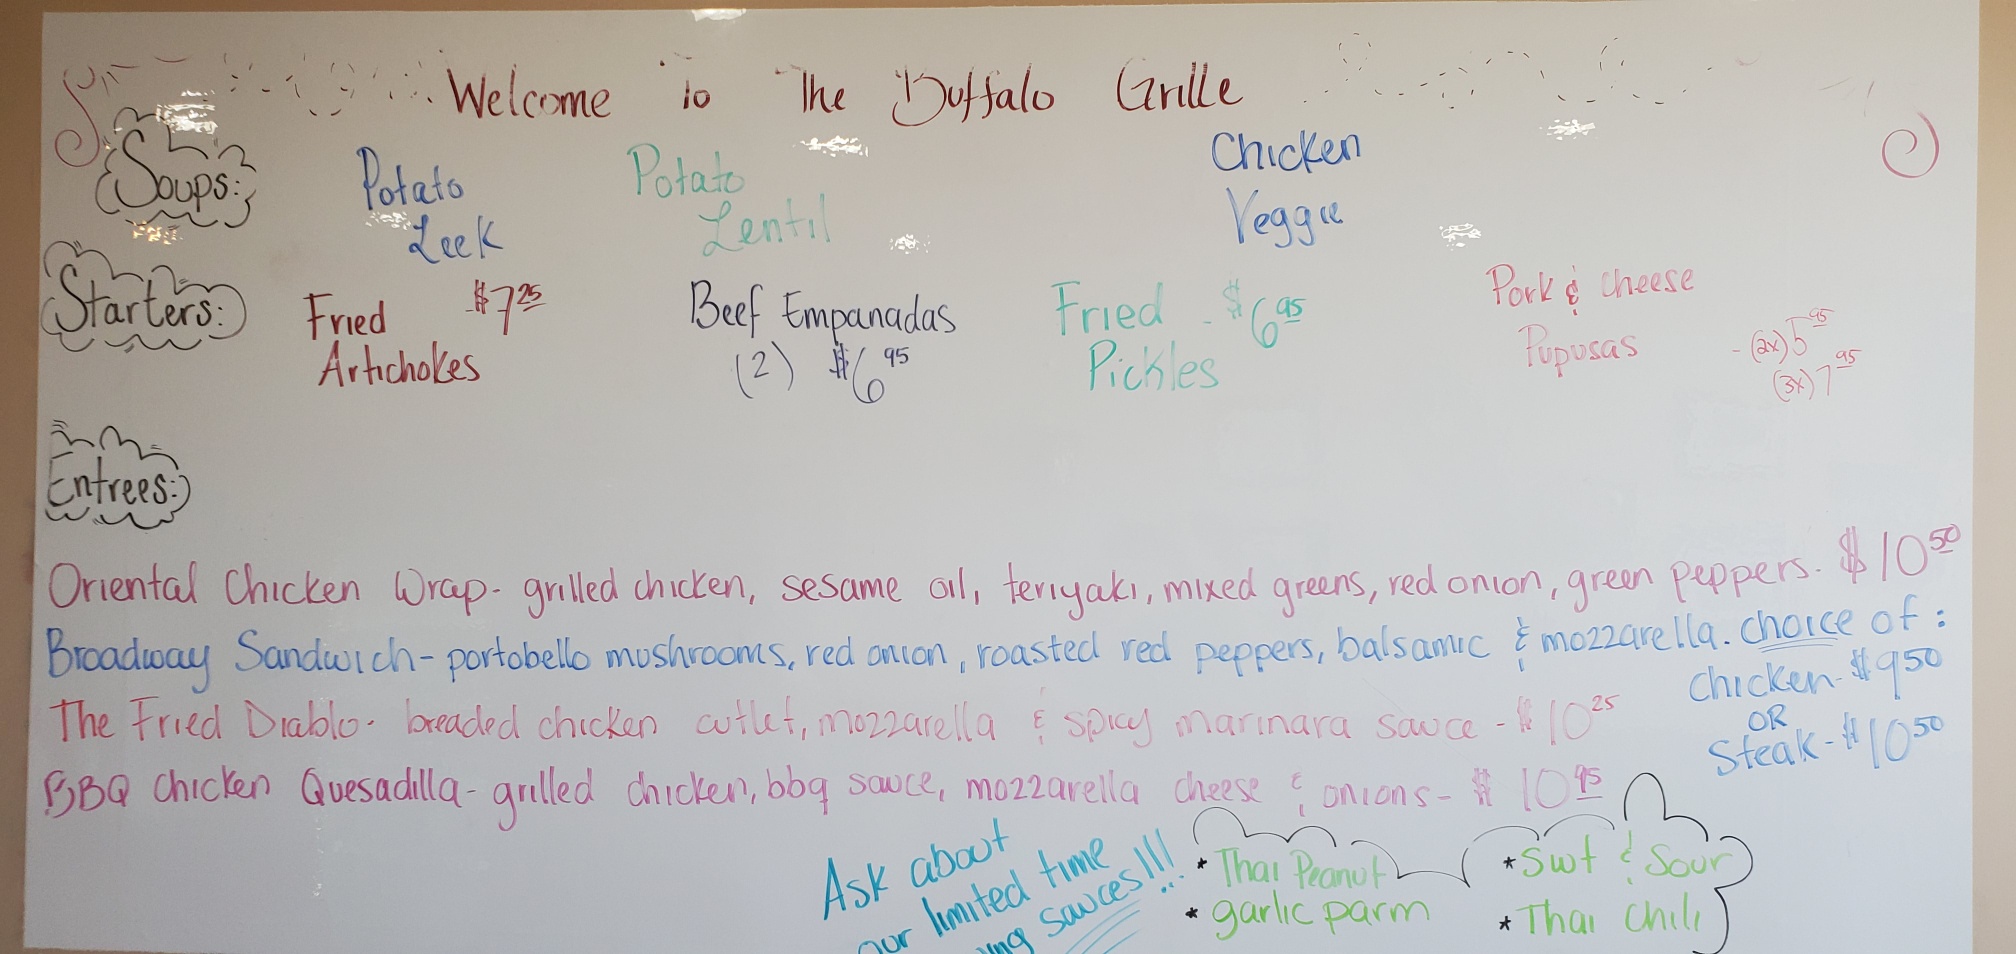 Welcome To The Buffalo Grille
Soups:
Potato
Leek
Potato
Lentil
Chicken
Veggie
Starters:
Fried - $7.25
Artichokes
Beef Empanadas
(2) $6.95
Fried - $6.95
Pickles
Pork & cheese
Pupusas - (2x) 5.95
(3x) 7.95
Entrees:
Oriental Chicken Wrap - grilled chicken, sesame oil, teriyaki, mixed greens, red onion, green peppers. $10.50
Broadway Sandwich - portobello mushrooms, red onion, roasted red peppers, balsamic & mozzarella. choice of:
Chicken - $9.50
OR
Steak - $10.50
The Fried Diablo - breaded chicken cutlet, mozzarella & spicy marinara sauce - $10.25
BBQ Chicken Quesadilla - grilled chicken, bbq sauce, mozzarella cheese & onions - $10.95
Ask about
our limited time
sauces!!!
* Thai Peanut
* garlic parm
* Swt & Sour
* Thai Chili